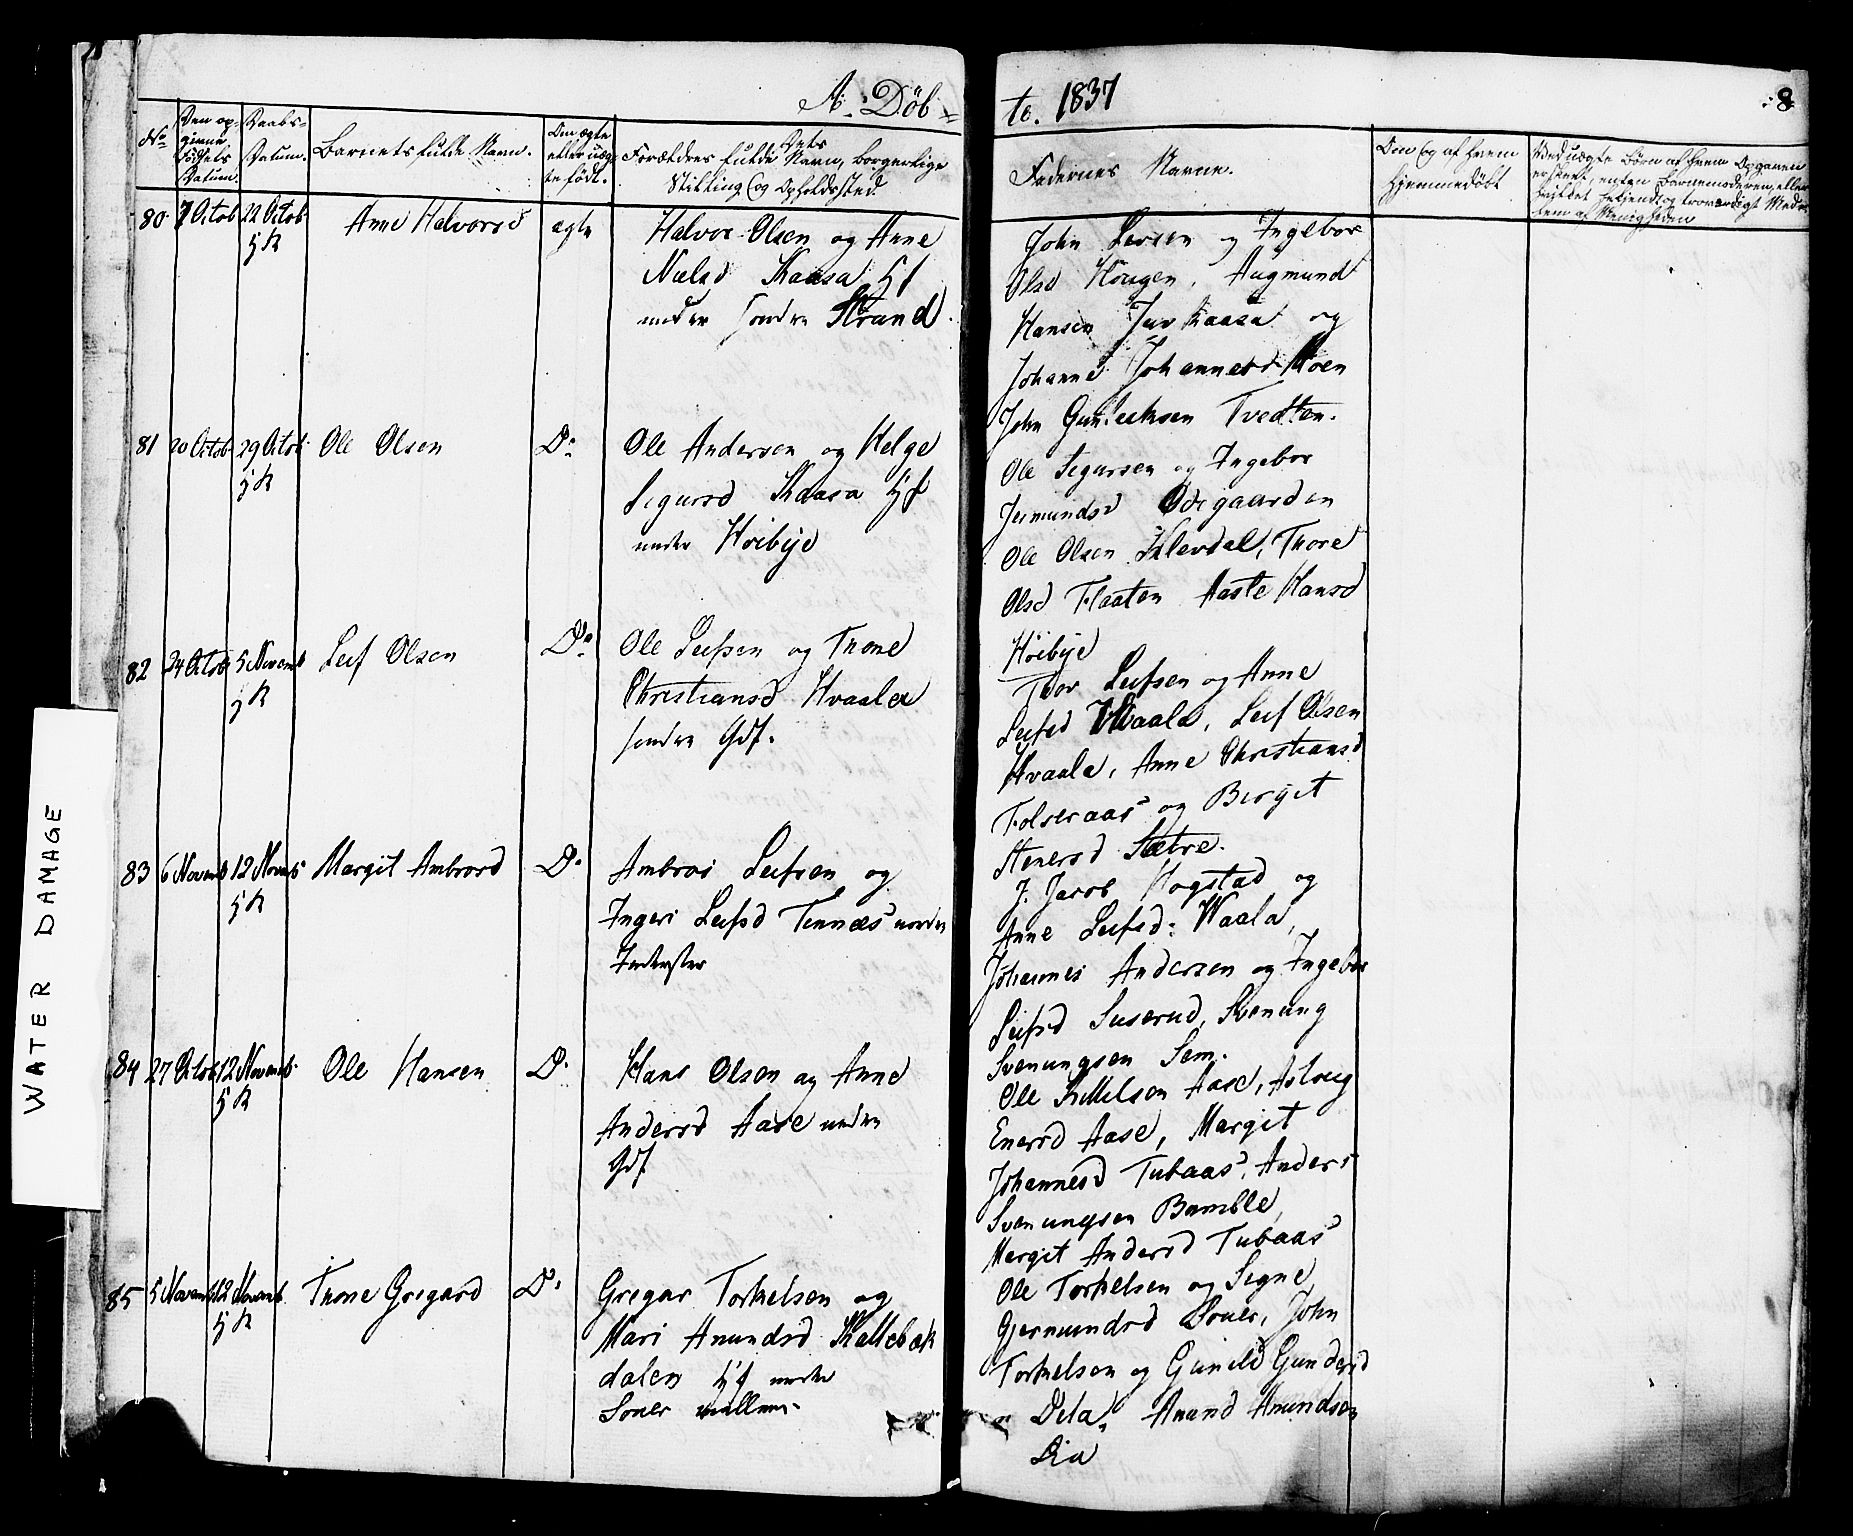 A. Döb-
te. 1837
8
No
Den op-
givne
Födsels
Datum.
Daabs-
Datum.
Barnets fulde Navn.
Om ægte
eller uæg-
te født.
Forældres fulde Navn, borgerlige
Stilling og Opholdssted
Fadernes Navne.
Om og af hvem
hjemmedöbt
Ved uægte Børn af hvem Opgaven
er skeet, enten Barnemoderen, eller
tem af Menigheden
80
7 Octob
22 Octob
Anne Halvorsd
ægte
Halvor Olsen og Anne
Nielsd Kaasa
under söndre Strand
John Larsen og Ingebor
Olsd Hougen, Augmund
Hansen Juv Kaasa og
Johanne Johannesd Moen
John Gunleiksen Tvedten.
81
20 Octob
29 Octob
Ole Olsen
Do
Ole Andersen og Helge
Sigursd Kaasa
under Höibye
Ole Sigursen og Ingebor
Jermundsd Ödegaarden
Ole Olsen Klevdal, Thore
Olsd Flaaten Aaste Hansd
Höibye
82
24 Octob
5 Novemb
Leif Olsen
Do
Ole Leifsen og Thone
Christiansd Hvaala
söndre Gdf.
Thor Leifsen og Anne
Leifsd Hvaala, Leif Olsen
Hvaala, Anne Christiansd
Folseraas og Bergit
Stenersd Sætre.
83
6 Novemb
12 Novemb
Margit Ambrosd
Do
Ambros Leifsen og
Ingeri Leifsd Tinnæs nordre
Inderster
J. Jacob Hogstad og
Anne Leifsd: Waala,
Johannes Andersen og Ingebor
Leifsd Suserud, Svenung
Svenungsen Sem.
84
27 Octob
12 Novemb
Ole Hansen
Do
Hans Olsen og Anne
Andersd Aase nedre
Gdf
Ole Kittelsen Aase, Asloug
Enersd Aase, Margit
Johannesd Tubaas, Anders
Svenungsen Bamble,
Margit Andersd Tubaas
85
5 Novemb
12 Novemb
Thone Gregard
Do
Gregar Torkelsen og
Mari Amundsd Kallebæk
dalen under
Soner mellem
Ole Torkelsen og Signe
Gjermundsd Soner, John
Torkelsen og Gunild Gundersd
Dela, Amund Amundsen
Lia
WATER DAMAGE